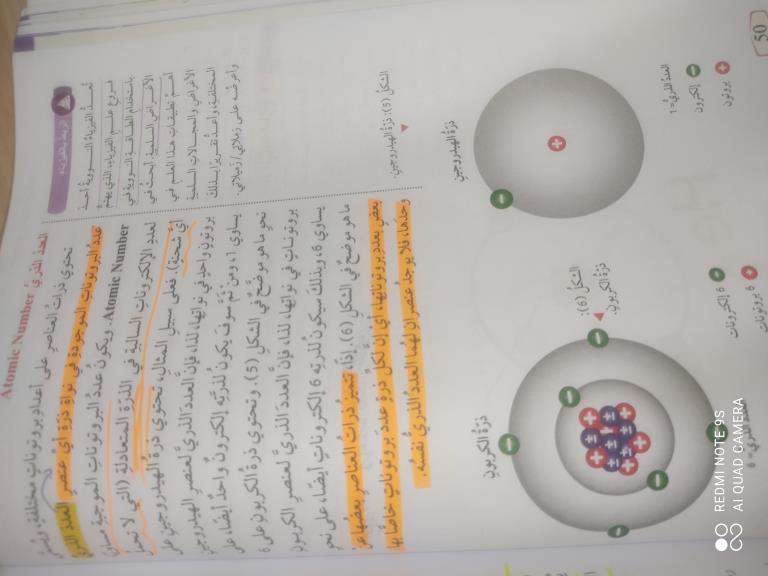 العددُ الذريُّ Atomic Number
تحتوي ذراتُ العناصرِ على أعدادِ بروتوناتٍ مختلفةٍ،
عددُ البروتوناتِ الموجودةِ في نواةِ ذرّةِ أيِّ عنصرٍ العددَ الذريَّ
Atomic Number. ويكونُ عددُ البروتوناتِ الموجبةِ
لعددِ الإلكتروناتِ السالبةِ في الذرّةِ المتعادلةِ (التي لا تحملُ
أيَّ شحنةٍ). فعلى سبيلِ المثالِ، تحتوي ذرّةُ الهيدروجينِ على
بروتونٍ واحدٍ في نواتِها، لذا، فإنَّ العددَ الذريَّ لعنصرِ الهيدروجينِ
يساوي 1، ومن ثَمَّ سوفَ يكونُ لذرّتِهِ إلكترونٌ واحدٌ أيضًا، على
نحوِ ما هو موضّحٌ في الشكلِ (5). وتحتوي ذرّةُ الكربونِ على 6
بروتوناتٍ في نواتِها، لذا، فإنَّ العددَ الذريَّ لعنصرِ الكربونِ
يساوي 6، وبذلكَ سيكونُ لذرّتِهِ 6 إلكتروناتٍ أيضًا، على نحوِ
ما هو موضّحٌ في الشكلِ (6). إذًا، تتميزُ ذراتُ العناصرِ بعضُها عنْ
بعضٍ بعددِ بروتوناتِها، أيْ إنَّ لكلِّ ذرةٍ عددَ بروتوناتٍ خاصًّا بها
وحدَها، فلا يوجدُ عنصرانِ لهُما العددُ الذريُّ نفسُه.
الربط بالفيزياء
تُعدُّ الفيزياءُ النوويةُ أحدَ
فروعِ علمِ الفيزياءِ، الذي يهتمُّ
باستخدامِ الطاقةِ النوويةِ في
الأغراضِ السلميةِ. أبحثُ في
أهمِّ تطبيقاتِ هذا العلمِ في
الأغراضِ والمجالاتِ السلميةِ
المختلفةِ، وأعدُّ تقريرًا بذلكَ
وأعرضُه على زملائي/ زميلاتي.
الشكلُ (5): ذرّةُ الهيدروجينِ.
ذرّةُ الهيدروجينِ
العددُ الذريُّ = 1
إلكترون
بروتون
الشكلُ (6):
ذرّةُ الكربونِ.
ذرّةُ الكربونِ
6 إلكترونات
6 بروتونات
50
REDMI NOTE 9S
AI QUAD CAMERA